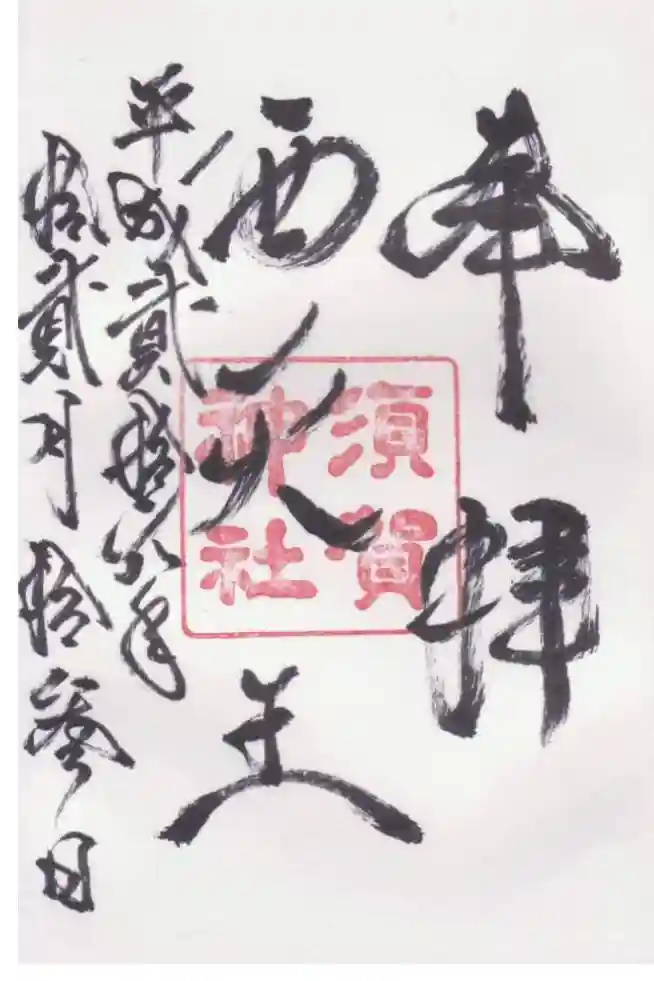 奉拝
西天王
須賀
神社
平成貳拾八年
拾貳月拾参日